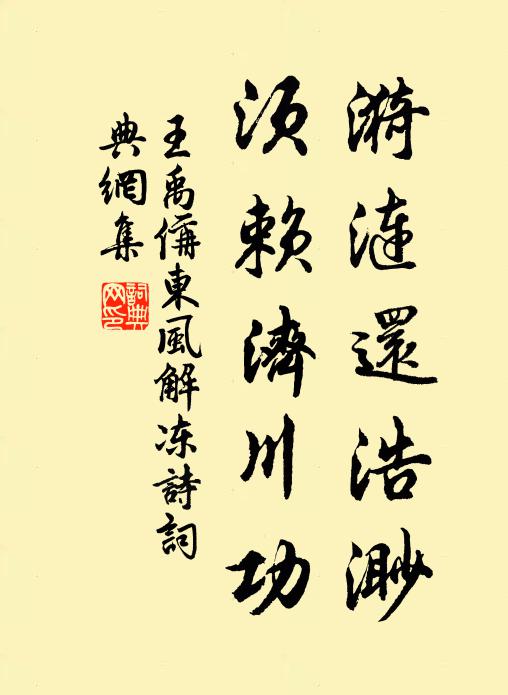 漪漣還浩渺
須賴濟川功
王禹偁東風解凍詩詞
典網集
詞典
网印